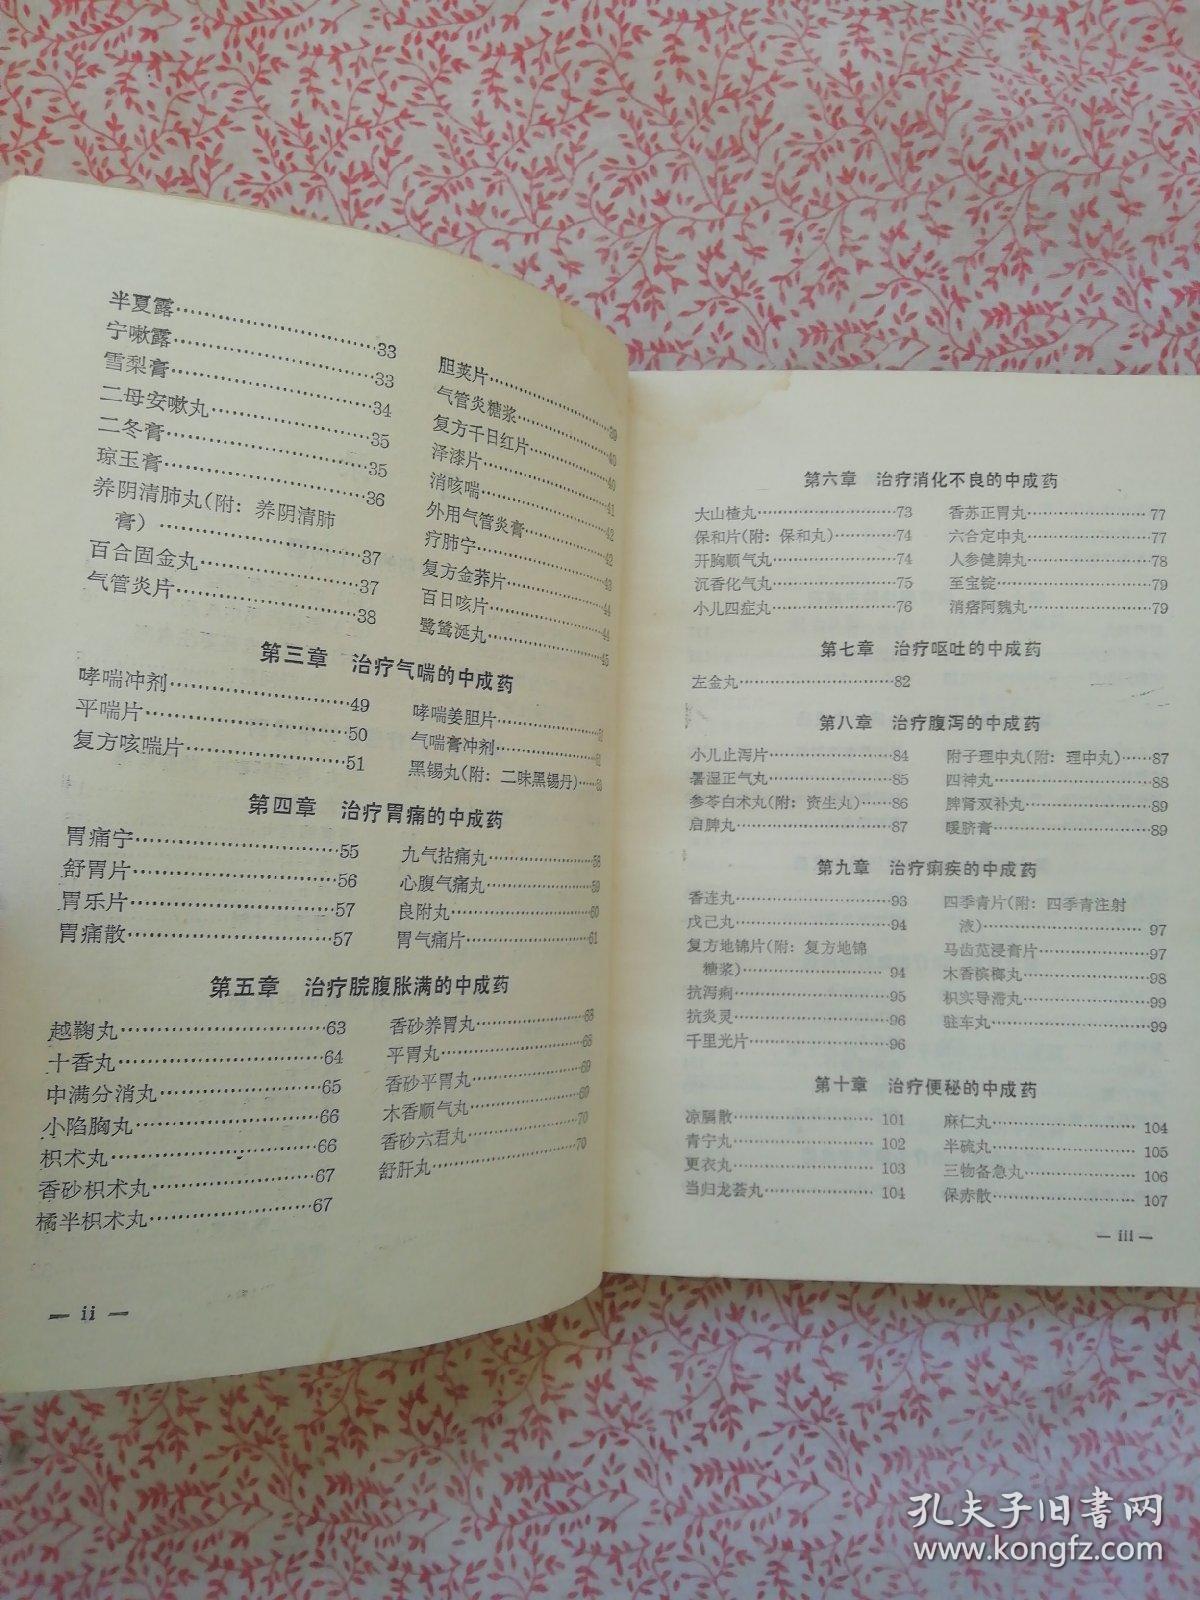 半夏露……33
宁嗽露……33
雪梨膏……34
二母安嗽丸……35
二冬膏……35
琼玉膏……36
养阴清肺丸(附：养阴清肺
膏)……37
百合固金丸……37
气管炎片……38
胆荚片……39
气管炎糖浆……40
复方千日红片……40
泽漆片……41
消咳喘……42
外用气管炎膏……42
疗肺宁……43
复方金荞片……44
百日咳片……44
鹭鸶涎丸……45
第三章 治疗气喘的中成药
哮喘冲剂……49
平喘片……50
复方咳喘片……51
哮喘姜胆片……51
气喘膏冲剂……
黑锡丸(附：二味黑锡丹)……
第四章 治疗胃痛的中成药
胃痛宁……55
舒胃片……56
胃乐片……57
胃痛散……57
九气拈痛丸……58
心腹气痛丸……59
良附丸……60
胃气痛片……61
第五章 治疗脘腹胀满的中成药
越鞠丸……63
十香丸……64
中满分消丸……65
小陷胸丸……66
枳术丸……66
香砂枳术丸……67
橘半枳术丸……67
香砂养胃丸……68
平胃丸……68
香砂平胃丸……69
木香顺气丸……69
香砂六君丸……70
舒肝丸……70
— ii —
第六章 治疗消化不良的中成药
大山楂丸……73
保和片(附：保和丸)……74
开胸顺气丸……74
沉香化气丸……75
小儿四症丸……76
香苏正胃丸……77
六合定中丸……77
人参健脾丸……78
至宝锭……79
消痞阿魏丸……79
第七章 治疗呕吐的中成药
左金丸……82
第八章 治疗腹泻的中成药
小儿止泻片……84
暑湿正气丸……85
参苓白术丸(附：资生丸)……86
启脾丸……87
附子理中丸(附：理中丸)……87
四神丸……88
脾肾双补丸……89
暖脐膏……89
第九章 治疗痢疾的中成药
香连丸……93
戊己丸……94
复方地锦片(附：复方地锦
糖浆)……94
抗泻痢……95
抗炎灵……96
千里光片……96
四季青片(附：四季青注射
液)……97
马齿苋浸膏片……97
木香槟榔丸……98
枳实导滞丸……99
驻车丸……99
第十章 治疗便秘的中成药
凉膈散……101
青宁丸……102
更衣丸……103
当归龙荟丸……104
麻仁丸……104
半硫丸……105
三物备急丸……106
保赤散……107
— iii —
孔夫子旧书网
www.kongfz.com